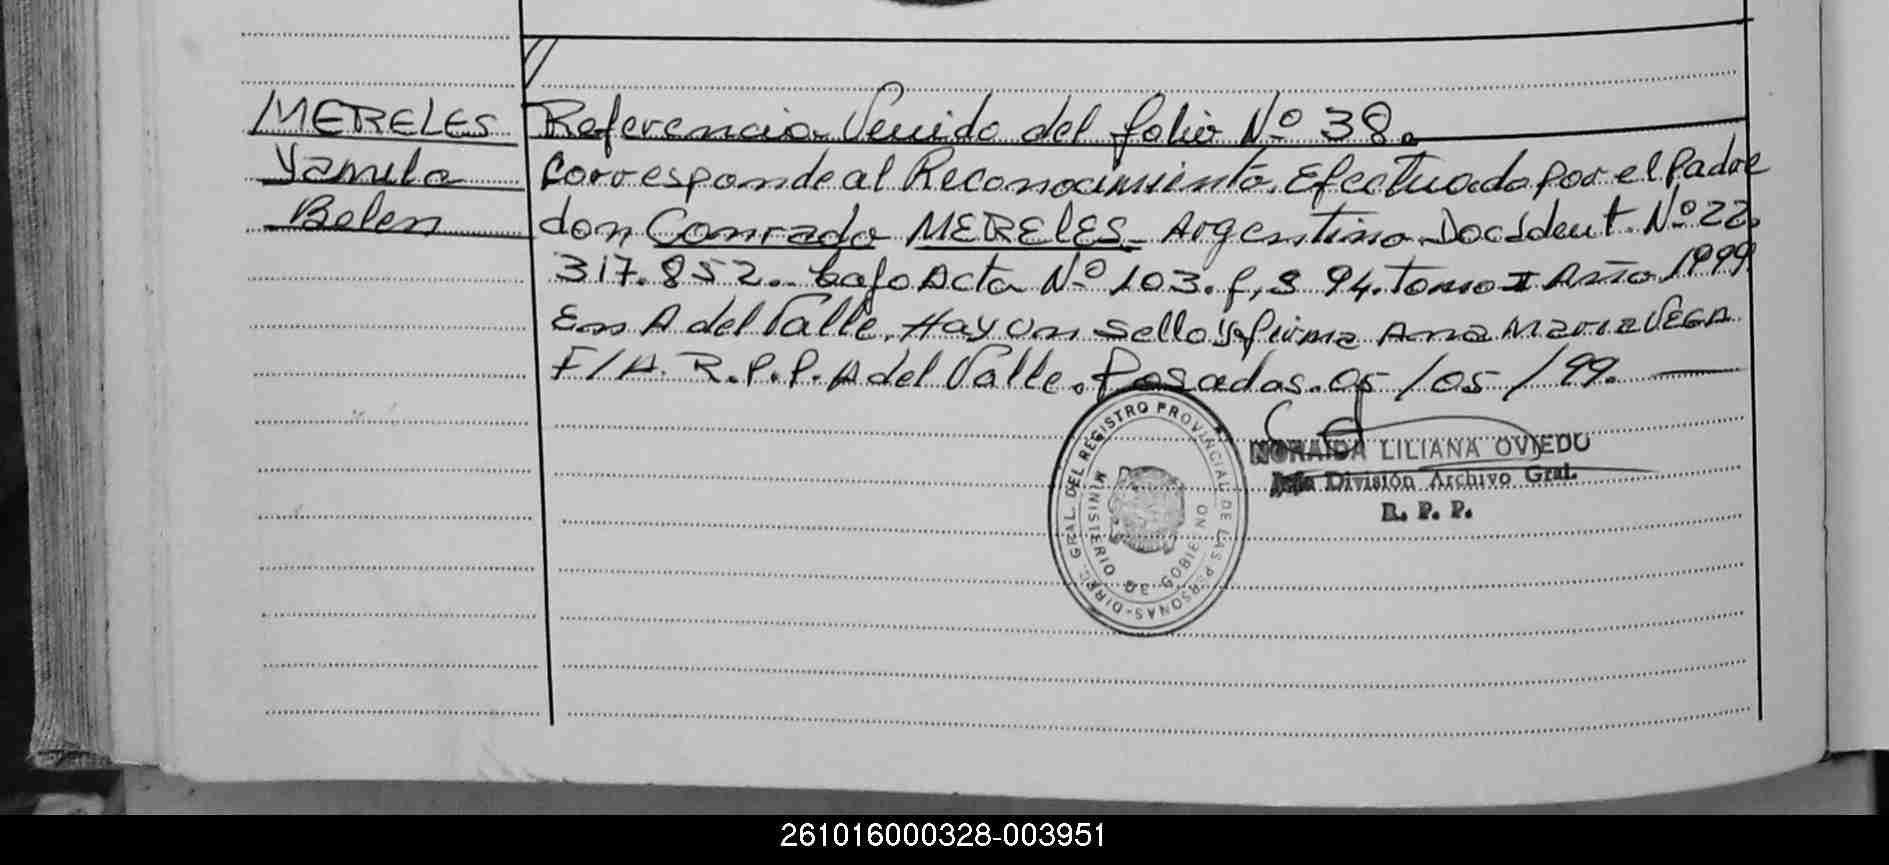 MERELES
Yamila
Belen
Referencia Venido del folio Nº 38.
Corresponde al Reconocimiento Efectuado por el Padre
don Conrado MERELES Argentino Doc Ident. Nº 22.
317.852.. bajo Acta Nº 103. f,s 94. Tomo I Año 1999
Em A del Valle. Hay un sello y firma Ana Maria VEGA
F/A. R.P.P. A del Valle. Posadas. 05/05/99.
NORAIDA LILIANA OVIEDO
Jefa División Archivo Gral.
R. P. P.
DIREC. GRAL. DEL REGISTRO PROVINCIAL DE LAS PERSONAS-
MINISTERIO DE GOBIERNO
261016000328-003951